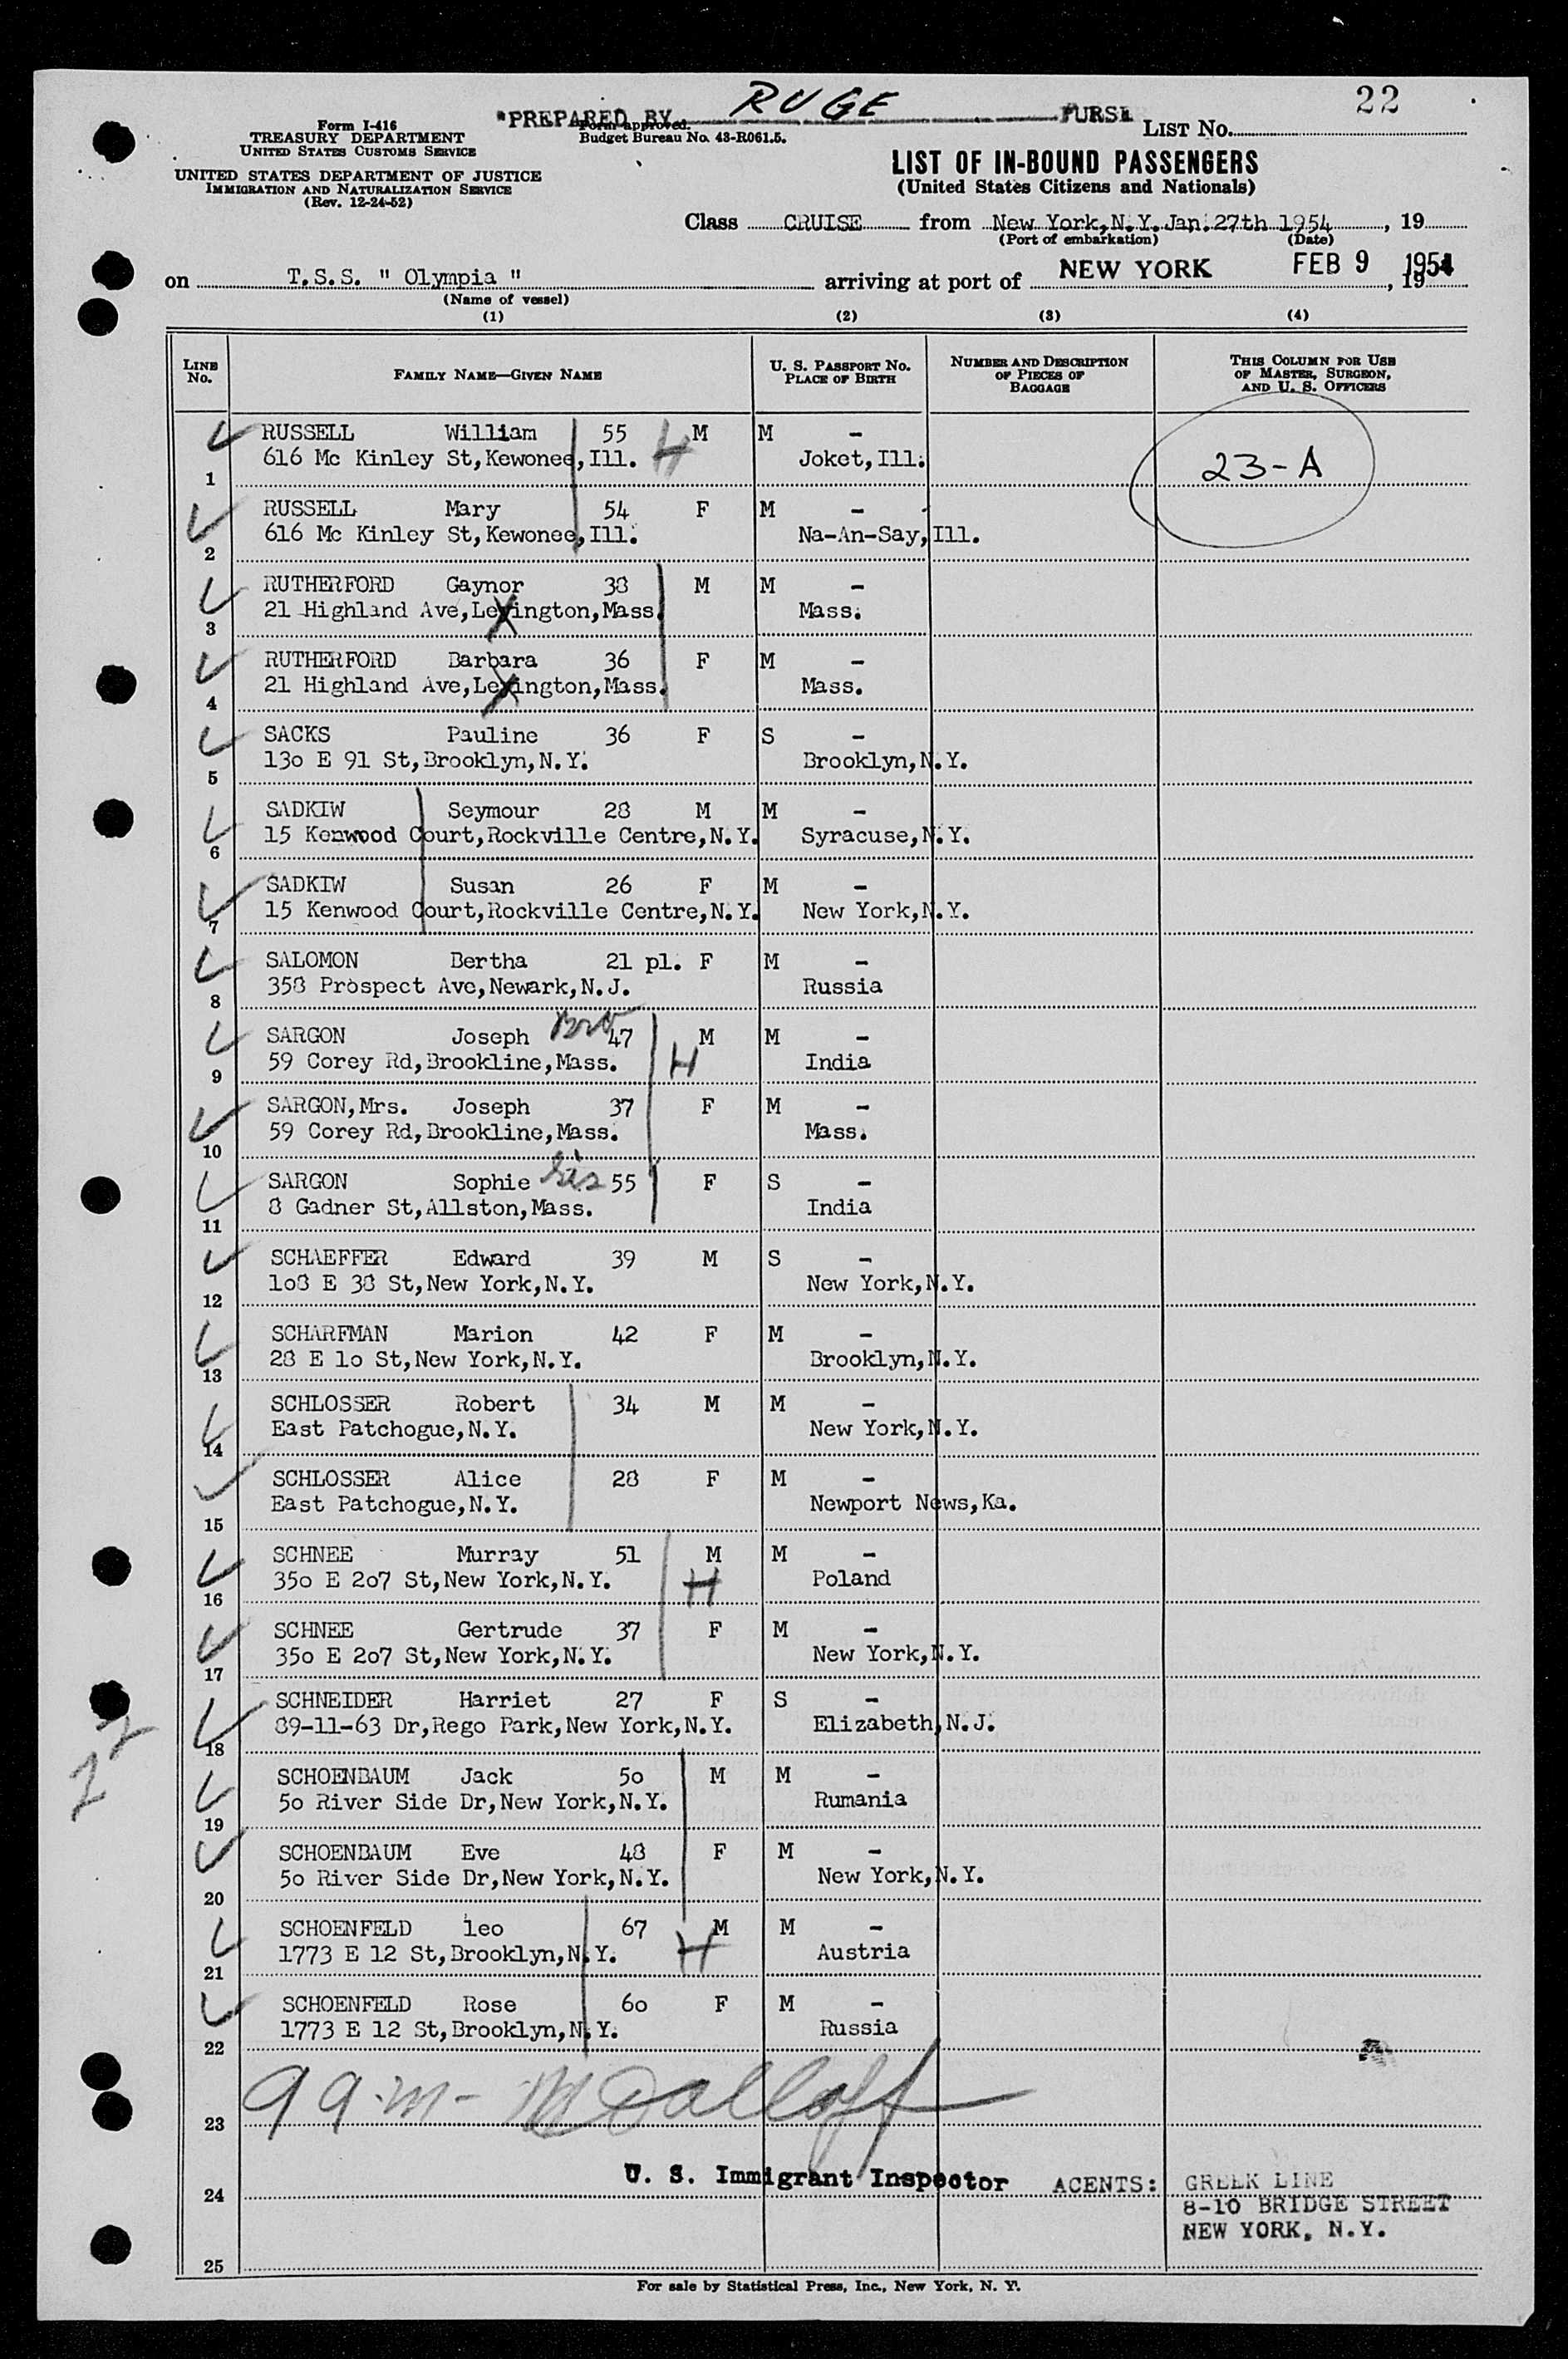 *PREPARED BY RUGE PURSE
22
Form I-416
TREASURY DEPARTMENT
UNITED STATES CUSTOMS SERVICE
Form approved.
Budget Bureau No. 43-R061.5.
LIST No.
UNITED STATES DEPARTMENT OF JUSTICE
IMMIGRATION AND NATURALIZATION SERVICE
(Rev. 12-24-52)
LIST OF IN-BOUND PASSENGERS
(United States Citizens and Nationals)
Class CRUISE from New York,N.Y.Jan.27th 1954, 19
(Port of embarkation) (Date)
on T.S.S. " Olympia " arriving at port of NEW YORK FEB 9 1954, 19
(Name of vessel)
(1) (2) (3) (4)
LINE No.
FAMILY NAME—GIVEN NAME
U. S. PASSPORT NO.
PLACE OF BIRTH
NUMBER AND DESCRIPTION
OF PIECES OF
BAGGAGE
THIS COLUMN FOR USE
OF MASTER, SURGEON,
AND U. S. OFFICERS
RUSSELL William 55 M M -
616 Mc Kinley St,Kewonee,Ill. H Joket,Ill.
23-A
1
RUSSELL Mary 54 F M -
616 Mc Kinley St,Kewonee,Ill. Na-An-Say,Ill.
2
RUTHERFORD Gaynor 38 M M -
21 Highland Ave,Lexington,Mass. Mass.
3
RUTHERFORD Barbara 36 F M -
21 Highland Ave,Lexington,Mass. Mass.
4
SACKS Pauline 36 F S -
13o E 91 St,Brooklyn,N.Y. Brooklyn,N.Y.
5
SADKIW Seymour 28 M M -
15 Kenwood Court,Rockville Centre,N.Y. Syracuse,N.Y.
6
SADKIW Susan 26 F M -
15 Kenwood Court,Rockville Centre,N.Y. New York,N.Y.
7
SALOMON Bertha 21 pl. F M -
358 Prospect Ave,Newark,N.J. Russia
8
SARGON Joseph Bro 47 M M -
59 Corey Rd,Brookline,Mass. H India
9
SARGON,Mrs. Joseph 37 F M -
59 Corey Rd,Brookline,Mass. Mass.
10
SARGON Sophie Sis 55 F S -
8 Gadner St,Allston,Mass. India
11
SCHAEFFER Edward 39 M S -
1o8 E 38 St,New York,N.Y. New York,N.Y.
12
SCHARFMAN Marion 42 F M -
28 E 1o St,New York,N.Y. Brooklyn,N.Y.
13
SCHLOSSER Robert 34 M M -
East Patchogue,N.Y. New York,N.Y.
14
SCHLOSSER Alice 28 F M -
East Patchogue,N.Y. Newport News,Ka.
15
SCHNEE Murray 51 M M -
35o E 2o7 St,New York,N.Y. H Poland
16
SCHNEE Gertrude 37 F M -
35o E 2o7 St,New York,N.Y. New York,N.Y.
17
SCHNEIDER Harriet 27 F S -
89-11-63 Dr,Rego Park,New York,N.Y. Elizabeth,N.J.
18
22
SCHOENBAUM Jack 5o M M -
5o River Side Dr,New York,N.Y. Rumania
19
SCHOENBAUM Eve 48 F M -
5o River Side Dr,New York,N.Y. New York,N.Y.
20
SCHOENFELD leo 67 M M -
1773 E 12 St,Brooklyn,N.Y. H Austria
21
SCHOENFELD Rose 6o F M -
1773 E 12 St,Brooklyn,N.Y. Russia
22
23
U. S. Immigrant Inspector AGENTS: GREEK LINE
24
8-10 BRIDGE STREET
NEW YORK, N.Y.
25
For sale by Statistical Press, Inc., New York, N. Y.